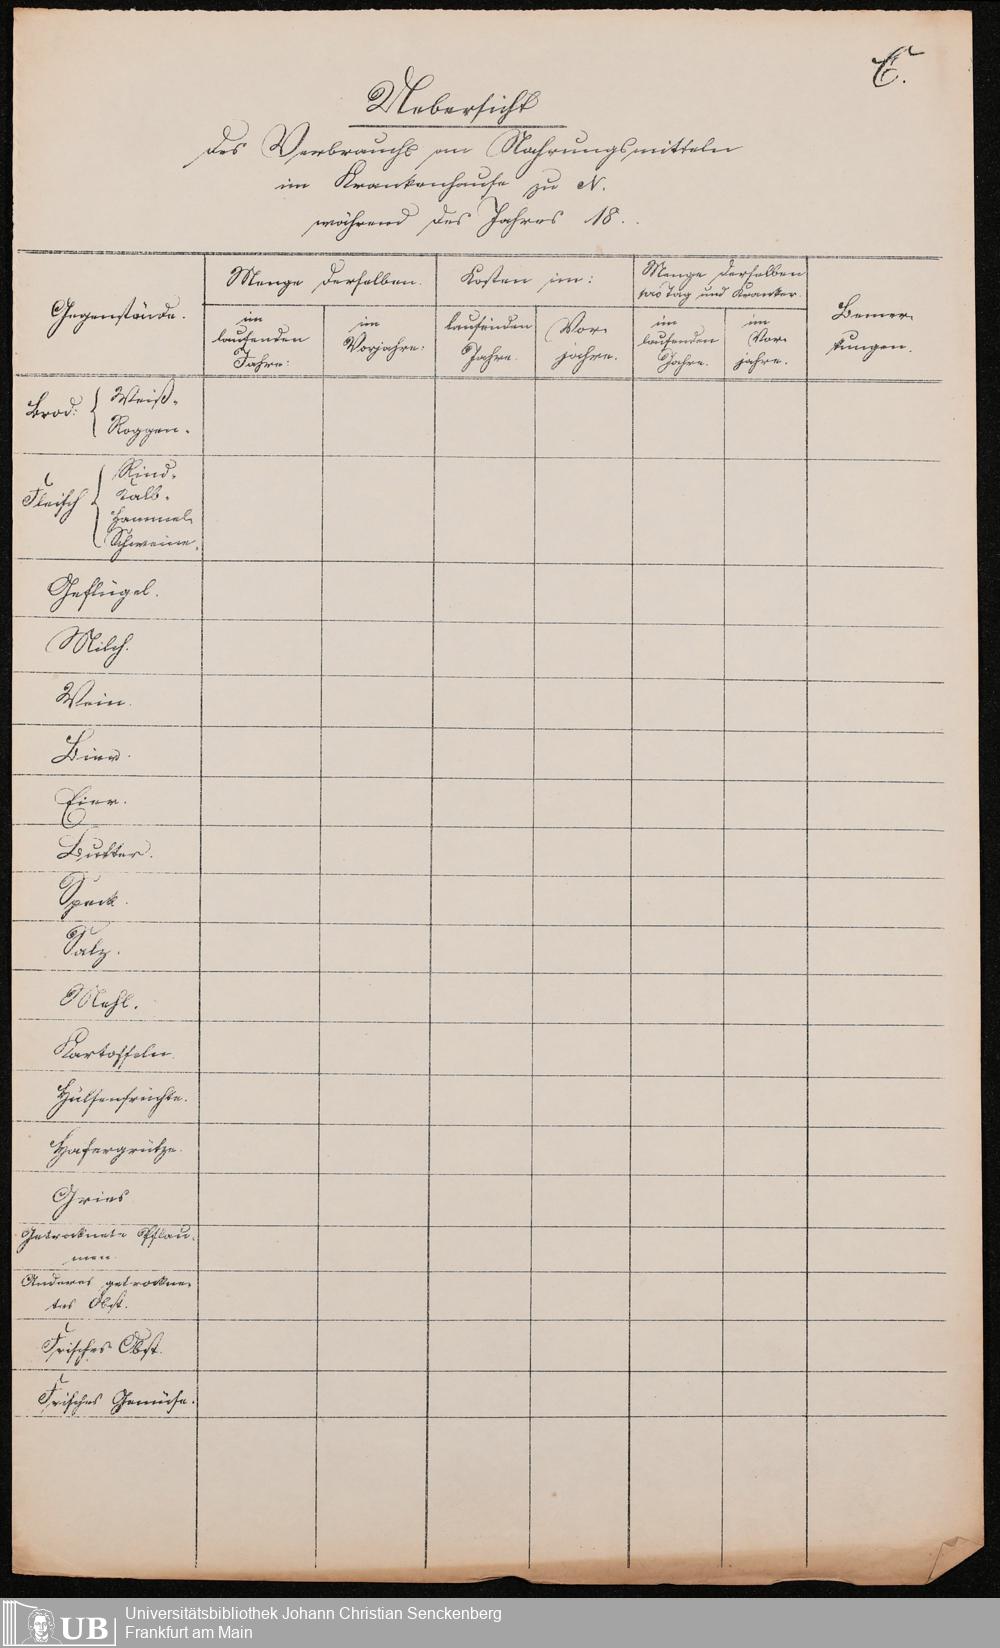 E.
Uebersicht
des Verbrauchs an Nahrungsmitteln
im Krankenhause zu N.
während des Jahres 18..
Gegenstände.
Menge derselben.
Kosten im:
Menge derselben
pro Tag und Kranker.
Bemer-
kungen
im
laufenden
Jahre:
im
Vorjahre:
laufenden
Jahre.
Vor-
jahre.
im
laufenden
Jahre.
im
Vor-
jahre.
Brod:
Weiß-
Roggen-
Fleisch
Rind-
Kalb-
Hammel-
Schweine-
Geflügel.
Milch.
Wein.
Bier.
Eier.
Butter.
Speck.
Salz.
Mehl.
Kartoffeln.
Hülsenfrüchte.
Hafergrütze.
Gries
Getrocknete Pflau-
men.
Anderes getrockne-
tes Obst.
Frisches Obst.
Frisches Gemüse.
UB
Universitätsbibliothek Johann Christian Senckenberg
Frankfurt am Main